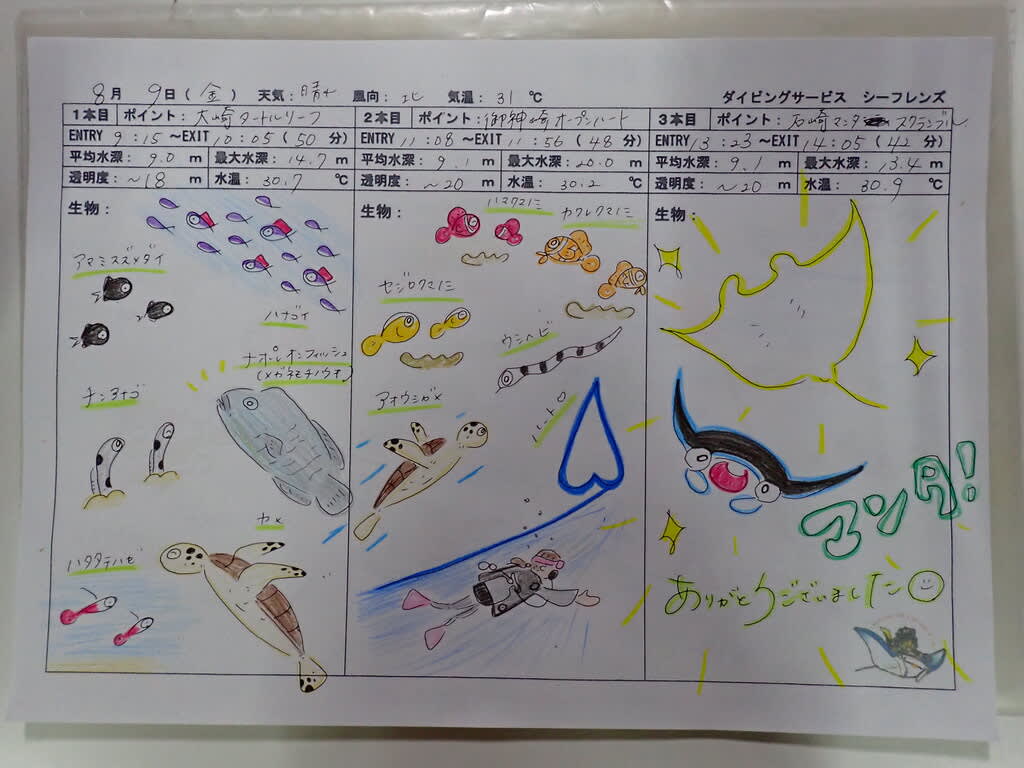 8月 9日(金) 天気:晴れ 風向:北 気温:31℃ ダイビングサービス シーフレンズ
1本目 ポイント:大崎タートルリーフ
ENTRY 9:15~EXIT 10:05(50分)
平均水深:9.0 m 最大水深:14.7 m
透明度:~18 m 水温:30.7 ℃
生物:
アマミスズメダイ
ハナゴイ
ナポレオンフィッシュ
(メガネモチノウオ)
チンアナゴ
カメ
ハタタテハゼ
2本目 ポイント:御神崎オープンハート
ENTRY 11:08~EXIT 11:56(48分)
平均水深:9.1 m 最大水深:20.0 m
透明度:~20 m 水温:30.2 ℃
生物:
ハマクマノミ
カクレクマノミ
セジロクマノミ
ウミヘビ
アオウミガメ
ハート
3本目 ポイント:石崎マンタスクランブル
ENTRY 13:23~EXIT 14:05(42分)
平均水深:9.1 m 最大水深:13.4 m
透明度:~20 m 水温:30.9 ℃
生物:
マンタ!
ありがとうございました